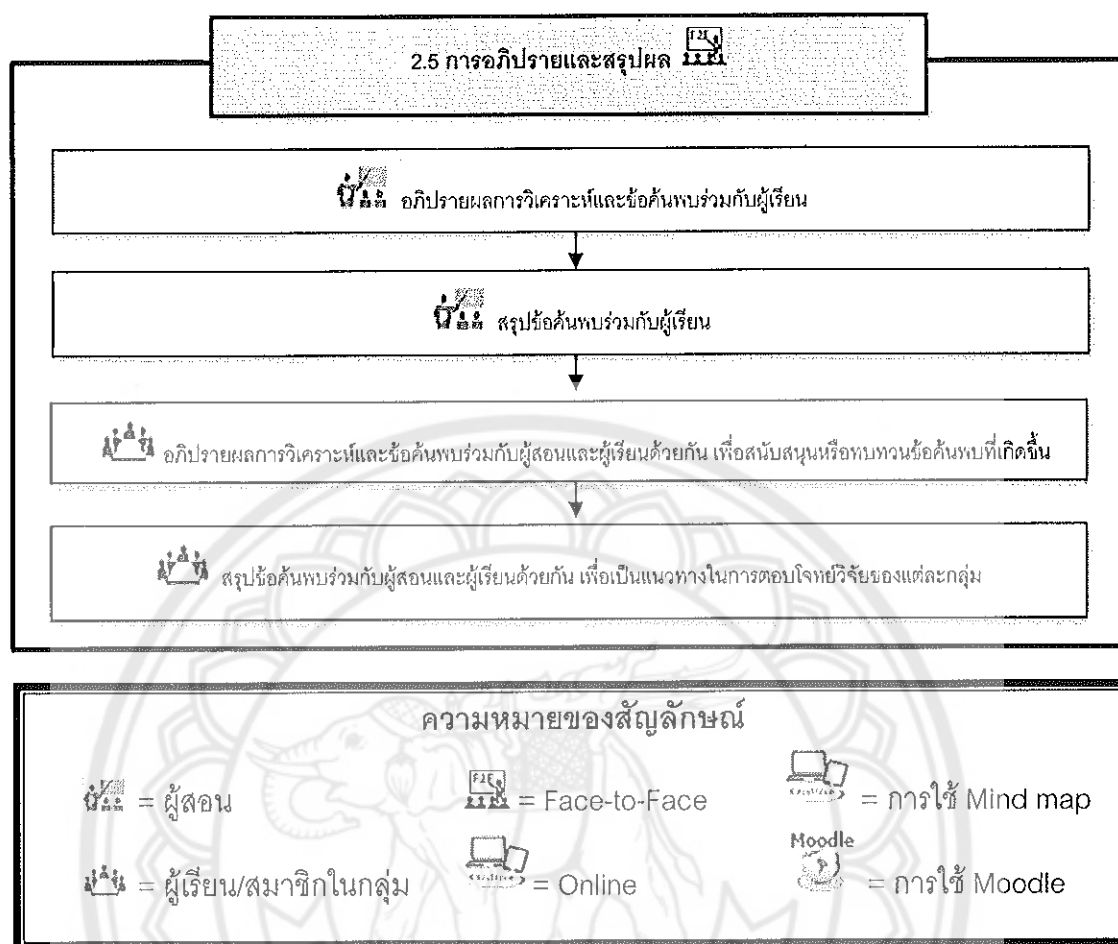 2.5 การอภิปรายและสรุปผล F2F
อภิปรายผลการวิเคราะห์และข้อค้นพบร่วมกับผู้เรียน
สรุปข้อค้นพบร่วมกับผู้เรียน
อภิปรายผลการวิเคราะห์และข้อค้นพบร่วมกับผู้สอนและผู้เรียนด้วยกัน เพื่อสนับสนุนหรือทบทวนข้อค้นพบที่เกิดขึ้น
สรุปข้อค้นพบร่วมกับผู้สอนและผู้เรียนด้วยกัน เพื่อเป็นแนวทางในการตอบโจทย์วิจัยของแต่ละกลุ่ม
ความหมายของสัญลักษณ์
= ผู้สอน F2F = Face-to-Face = การใช้ Mind map
Moodle
= ผู้เรียน/สมาชิกในกลุ่ม = Online = การใช้ Moodle